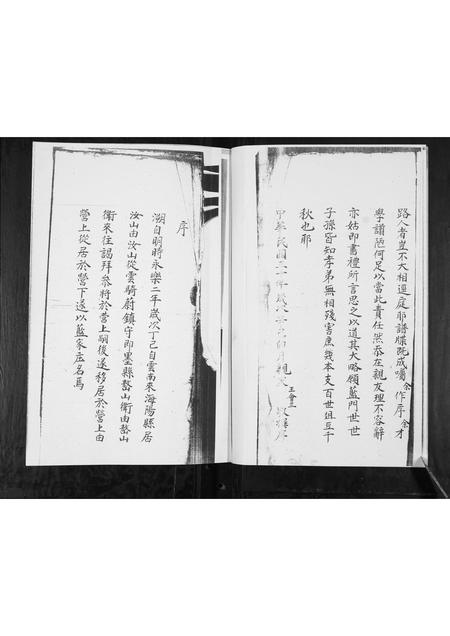 路人者豈不大相逕庭耶譜牒既成囑余作序余才
學譾陋何足以當此責任然忝在親友理不容辭
亦姑即書禮所言思之以道其大略願藍門世世
子孫皆知孝弟無相殘害庶幾本支百世俎豆千
秋也耶
中華民國二十年歲次 月 王會一
序
溯自明時永樂二年歲次丁己自雲南來海陽縣居
汝山由汝山從雲騎尉鎮守即墨縣鰲山衛由鰲山
衛來往謁拜參將於營上嗣後遂移居於營上由
營上從居於營下遂以藍家庄名焉